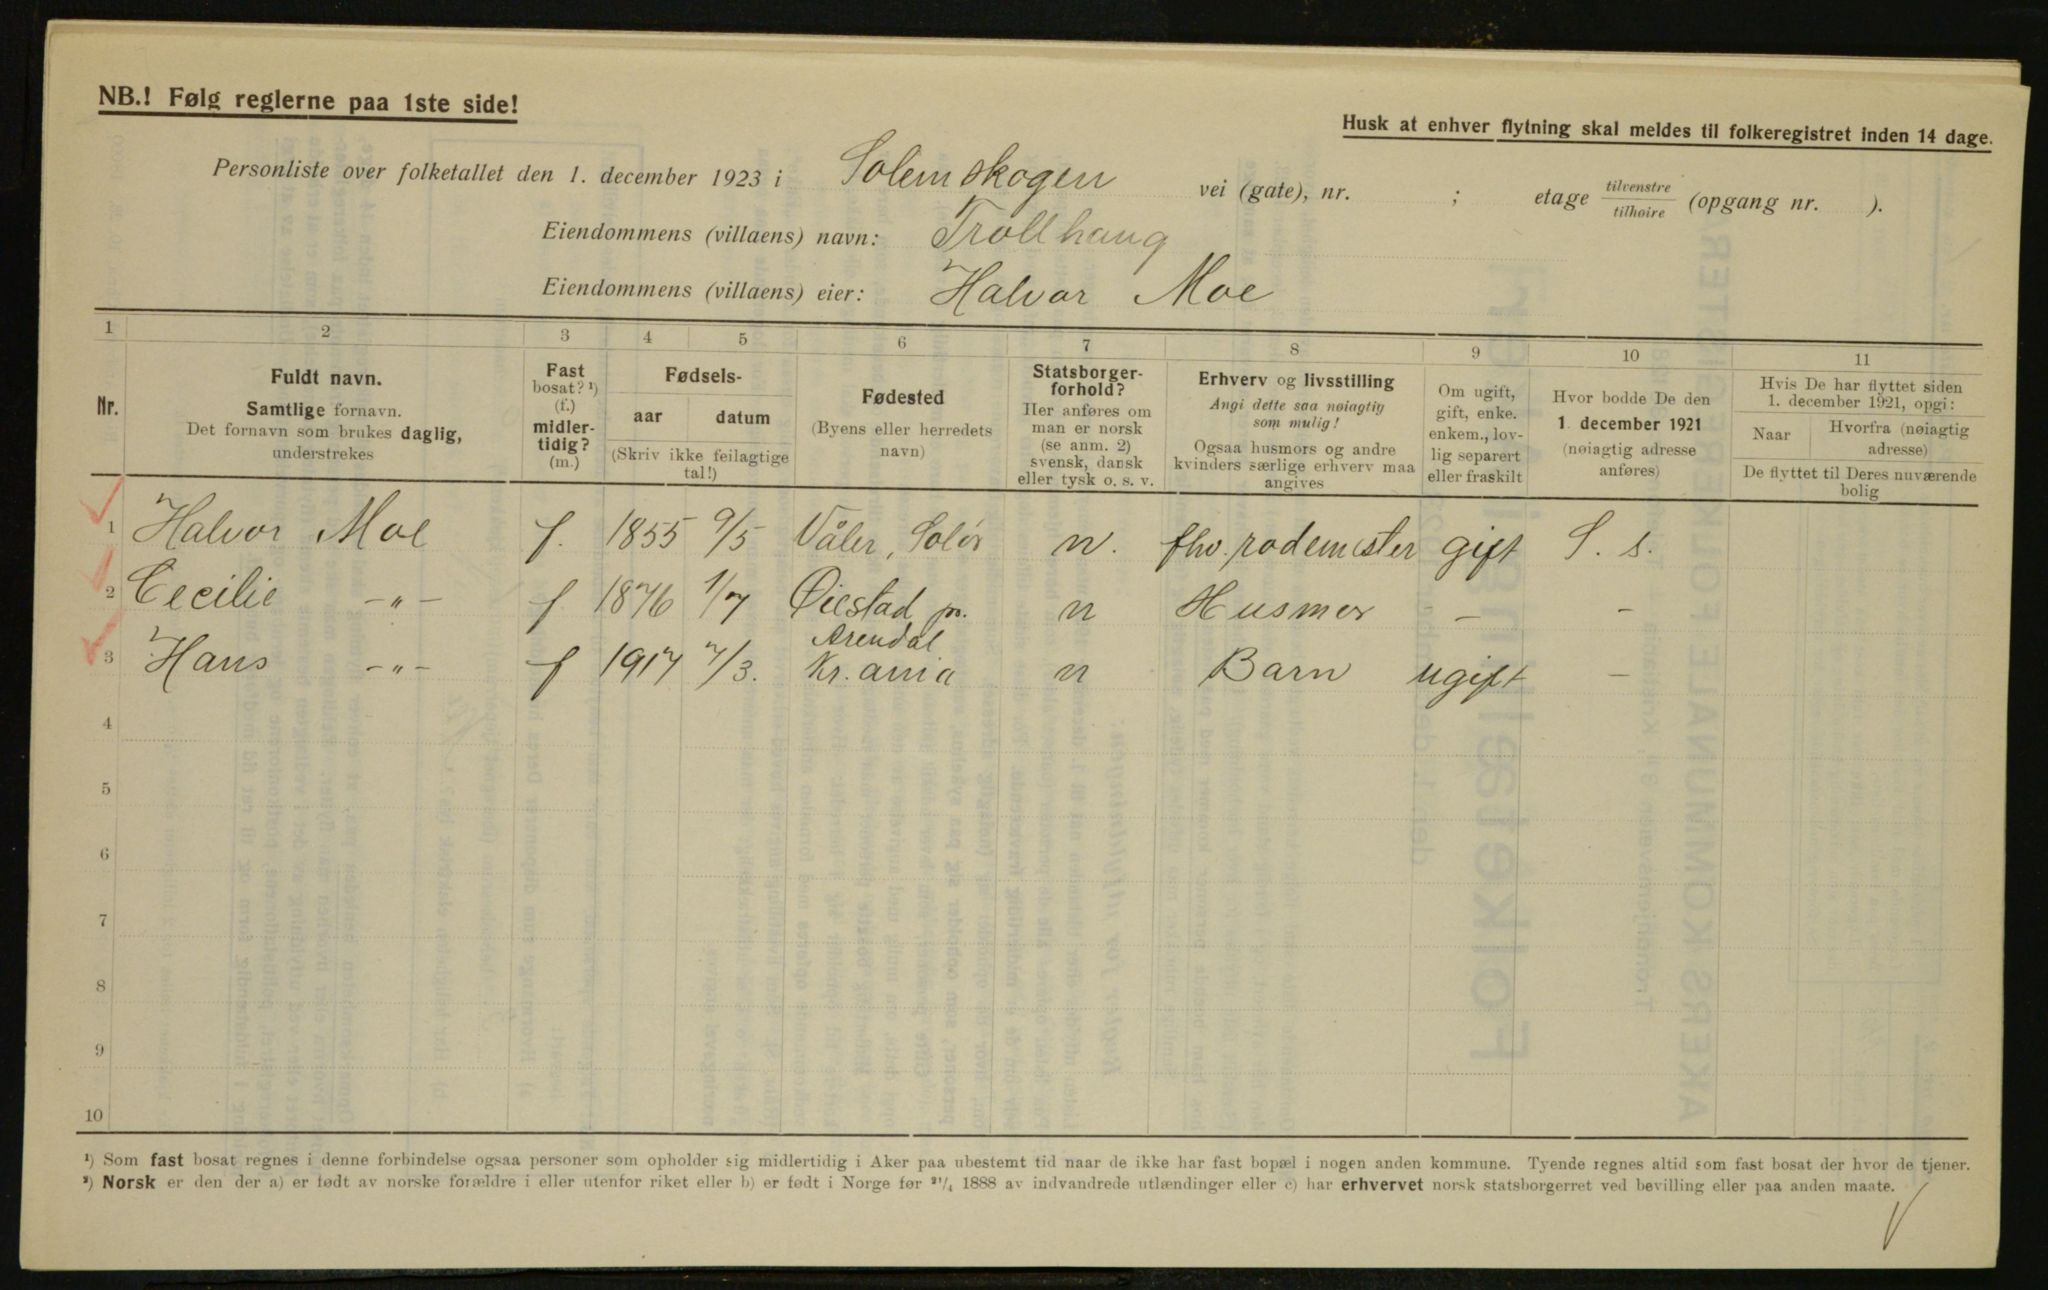 NB.! Følg reglerne paa 1ste side!
Husk at enhver flytning skal meldes til folkeregistret inden 14 dage.
Personliste over folketallet den 1. december 1923 i Solemskogen vei (gate), nr. ; etage tilvenstre / tilhoire (opgang nr. ).
Eiendommens (villaens) navn: Trollhaug
Eiendommens (villaens) eier: Halvor Moe
1 2 3 4 5 6 7 8 9 10 11
Nr.
Fuldt navn.
Samtlige fornavn.
Det fornavn som brukes daglig,
understrekes
Fast
bosat? ¹)
(f.)
midler-
tidig?
(m.)
Fødsels-
aar datum
(Skriv ikke feilagtige
tal!)
Fødested
(Byens eller herredets
navn)
Statsborger-
forhold?
Her anføres om
man er norsk
(se anm. 2)
svensk, dansk
eller tysk o. s. v.
Erhverv og livsstilling
Angi dette saa nøiagtig
som mulig!
Ogsaa husmors og andre
kvinders særlige erhverv maa
angives
Om ugift,
gift, enke.
enkem., lov-
lig separert
eller fraskilt
Hvor bodde De den
1. december 1921
(nøiagtig adresse
anføres)
Hvis De har flyttet siden
1. december 1921, opgi:
Naar
Hvorfra (nøiagtig
adresse)
De flyttet til Deres nuværende
bolig
1 Halvor Moe f. 1855 9/5 Våler, Solør n. fhv. rodemester gift S. s.
2 Cecilie -"- f 1876 1/7 Øiestad pr. n Husmor - -
Arendal
3 Hans -"- f 1917 7/3. Kr.ania n Barn ugift -
4
5
6
7
8
9
10
¹) Som fast bosat regnes i denne forbindelse ogsaa personer som opholder sig midlertidig i Aker paa ubestemt tid naar de ikke har fast bopæl i nogen anden kommune. Tyende regnes altid som fast bosat der hvor de tjener.
²) Norsk er den der a) er født av norske forældre i eller utenfor riket eller b) er født i Norge før ²¹/₄ 1888 av indvandrede utlændinger eller c) har erhvervet norsk statsborgerret ved bevilling eller paa anden maate.